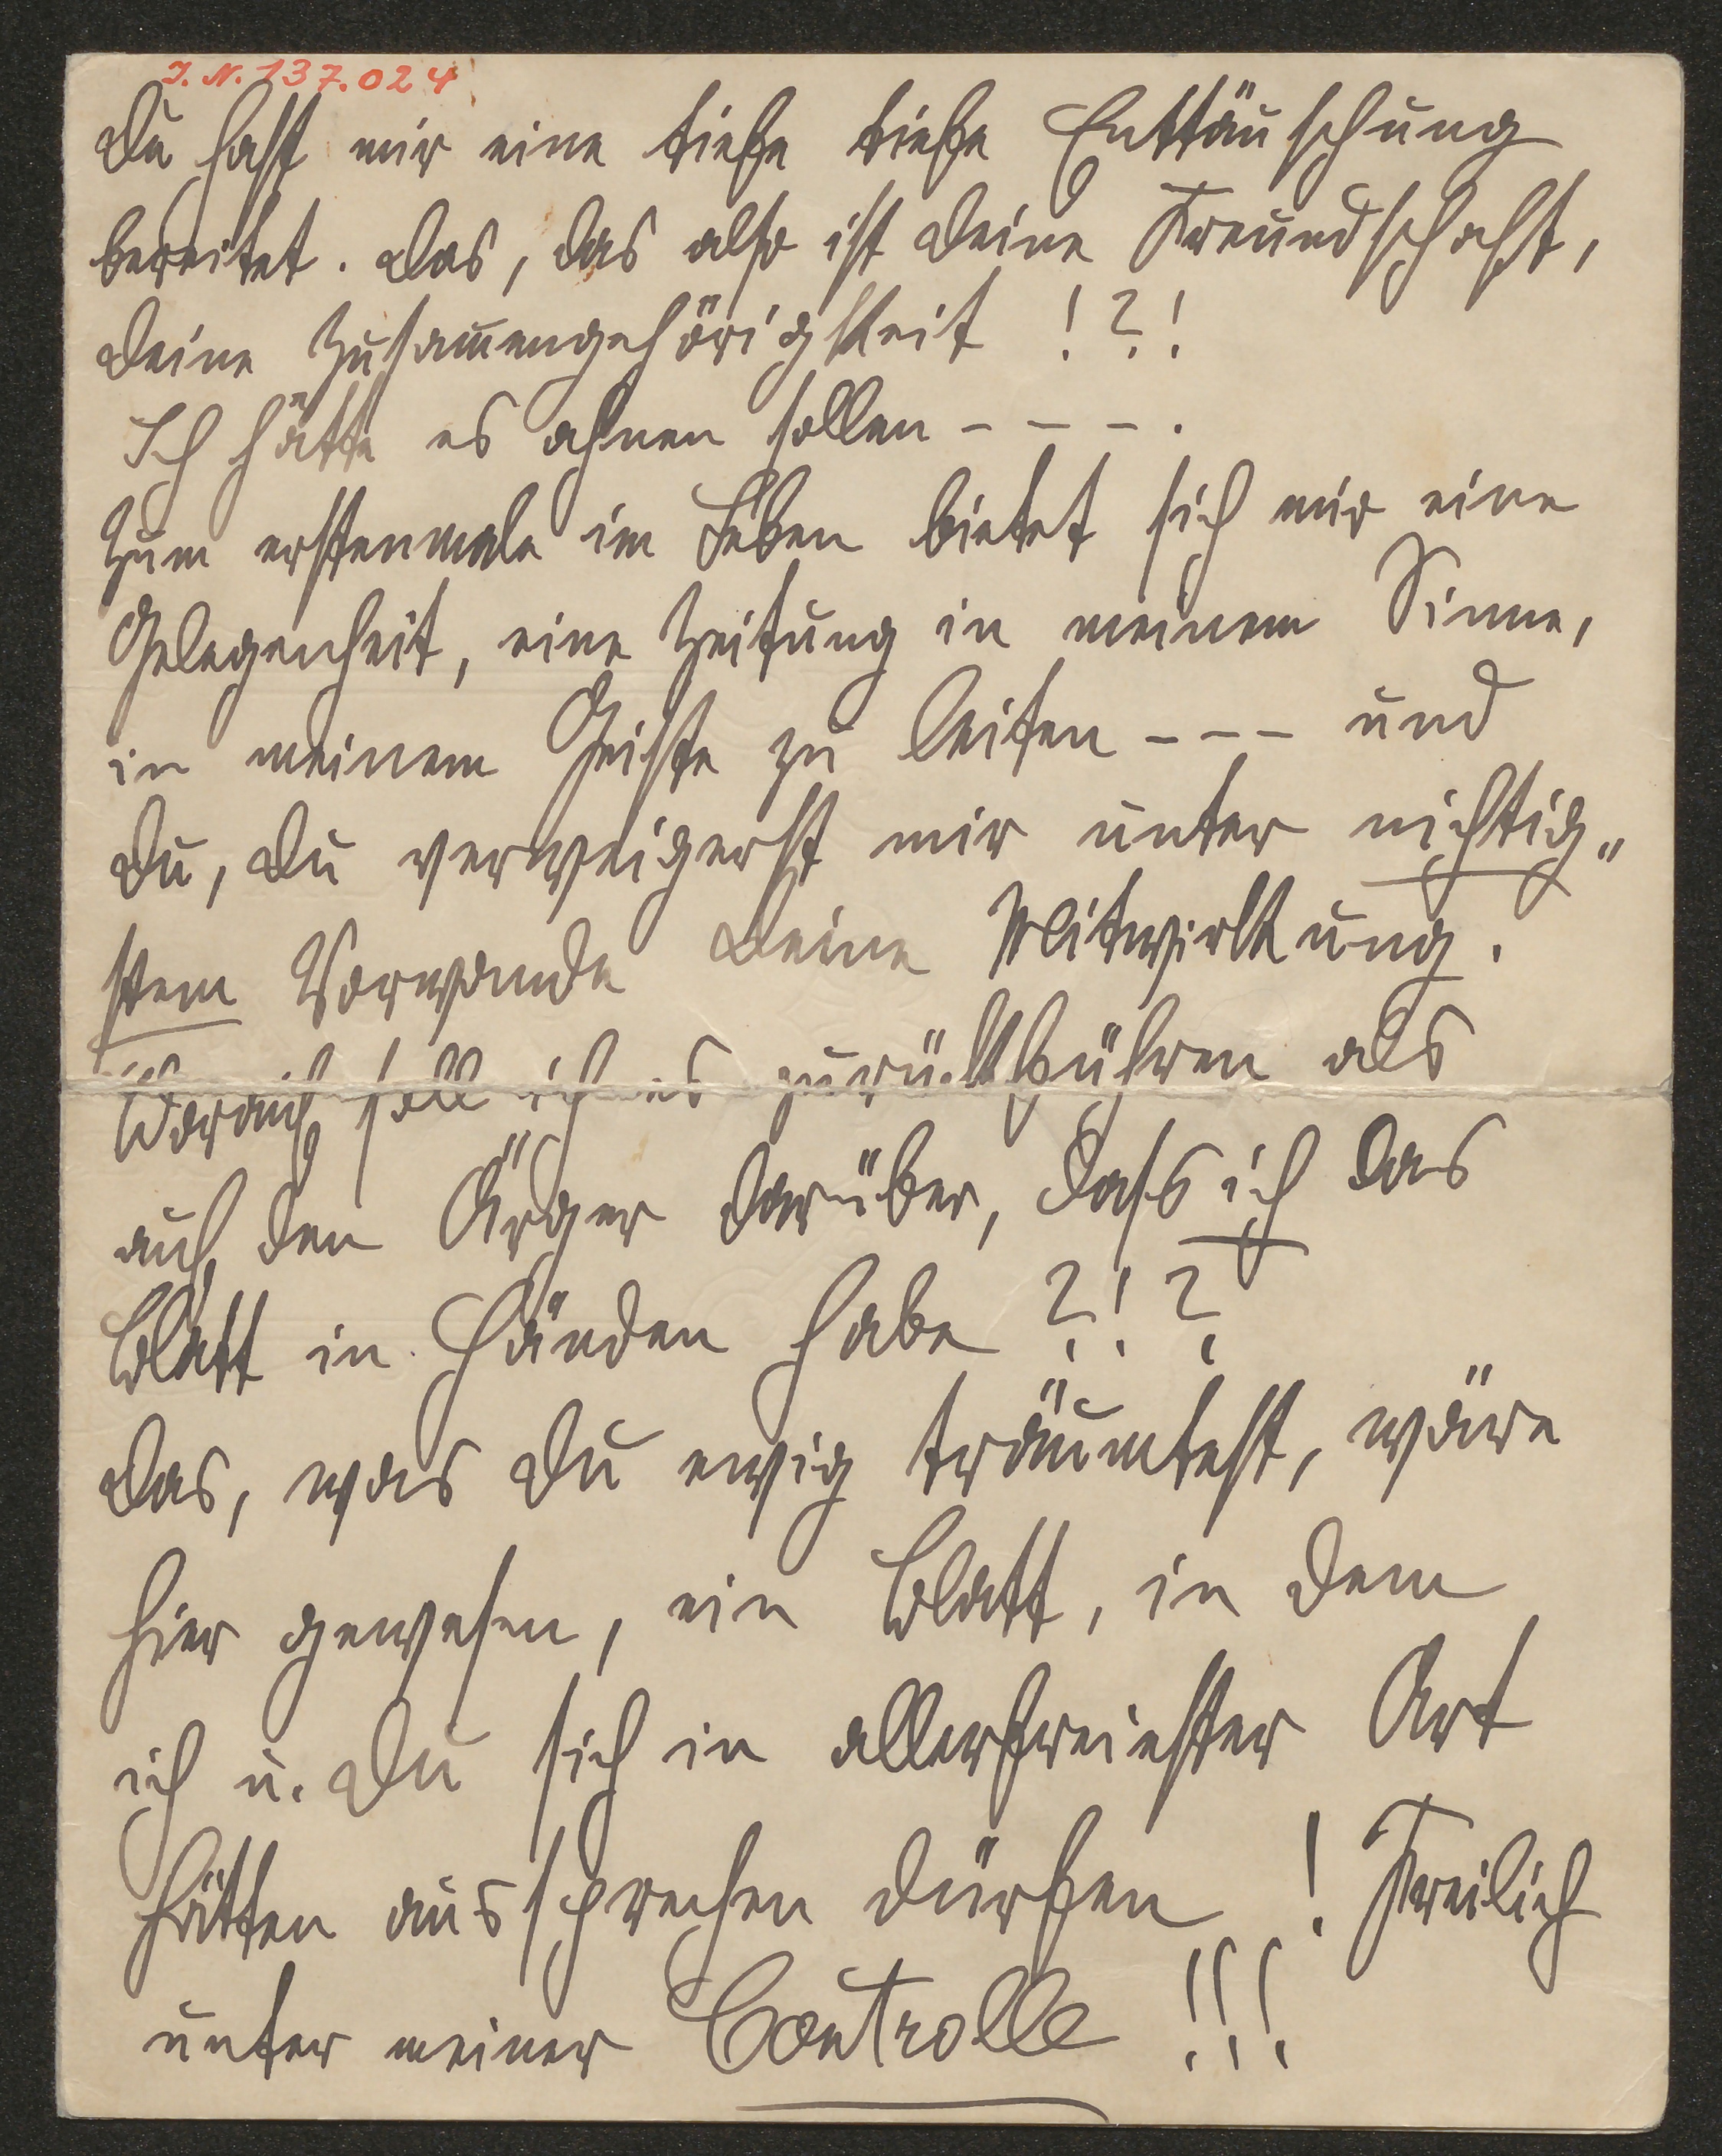 J. N. 137.024
Du hast mir eine tiefe tiefe Enttäuschung
bereitet. Das, das also ist Deine Freundschaft,
Deine Zusammengehörigkeit !?!
Ich hätte es ahnen sollen – – – .
Zum erstenmale im Leben bietet sich mir eine
Gelegenheit, eine Zeitung in meinem Sinne,
in meinem Geiste zu leiten – – – und
Du, Du verweigerst mir unter nichtig„
stem Vorwande Deine Mitwirkung.
Worauf soll ich es zurückführen als
auf den Ärger darüber, dass ich das
Blatt in Händen habe ?!?
Das, was Du ewig träumtest, wäre
hier gewesen, ein Blatt, in dem
ich u. Du sich in allerfreiester Art
hätten aussprechen dürfen ! Freilich
unter meiner Controlle !!!